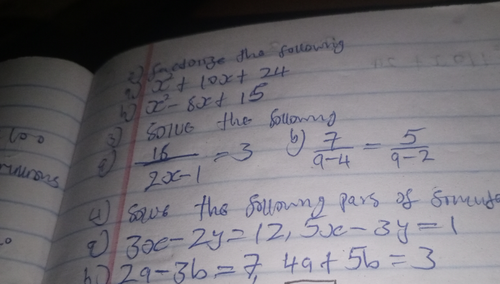 2) Factorize the following
a) x² + 10x + 24
b) x² - 8x + 15
3) Solve the following
a) 15/2x-1 = 3 b) 7/a-4 = 5/a-2
4) Solve the following pairs of
a) 3x - 2y = 12, 5x - 3y = 1
b) 2a - 3b = 7, 4a + 5b = 3